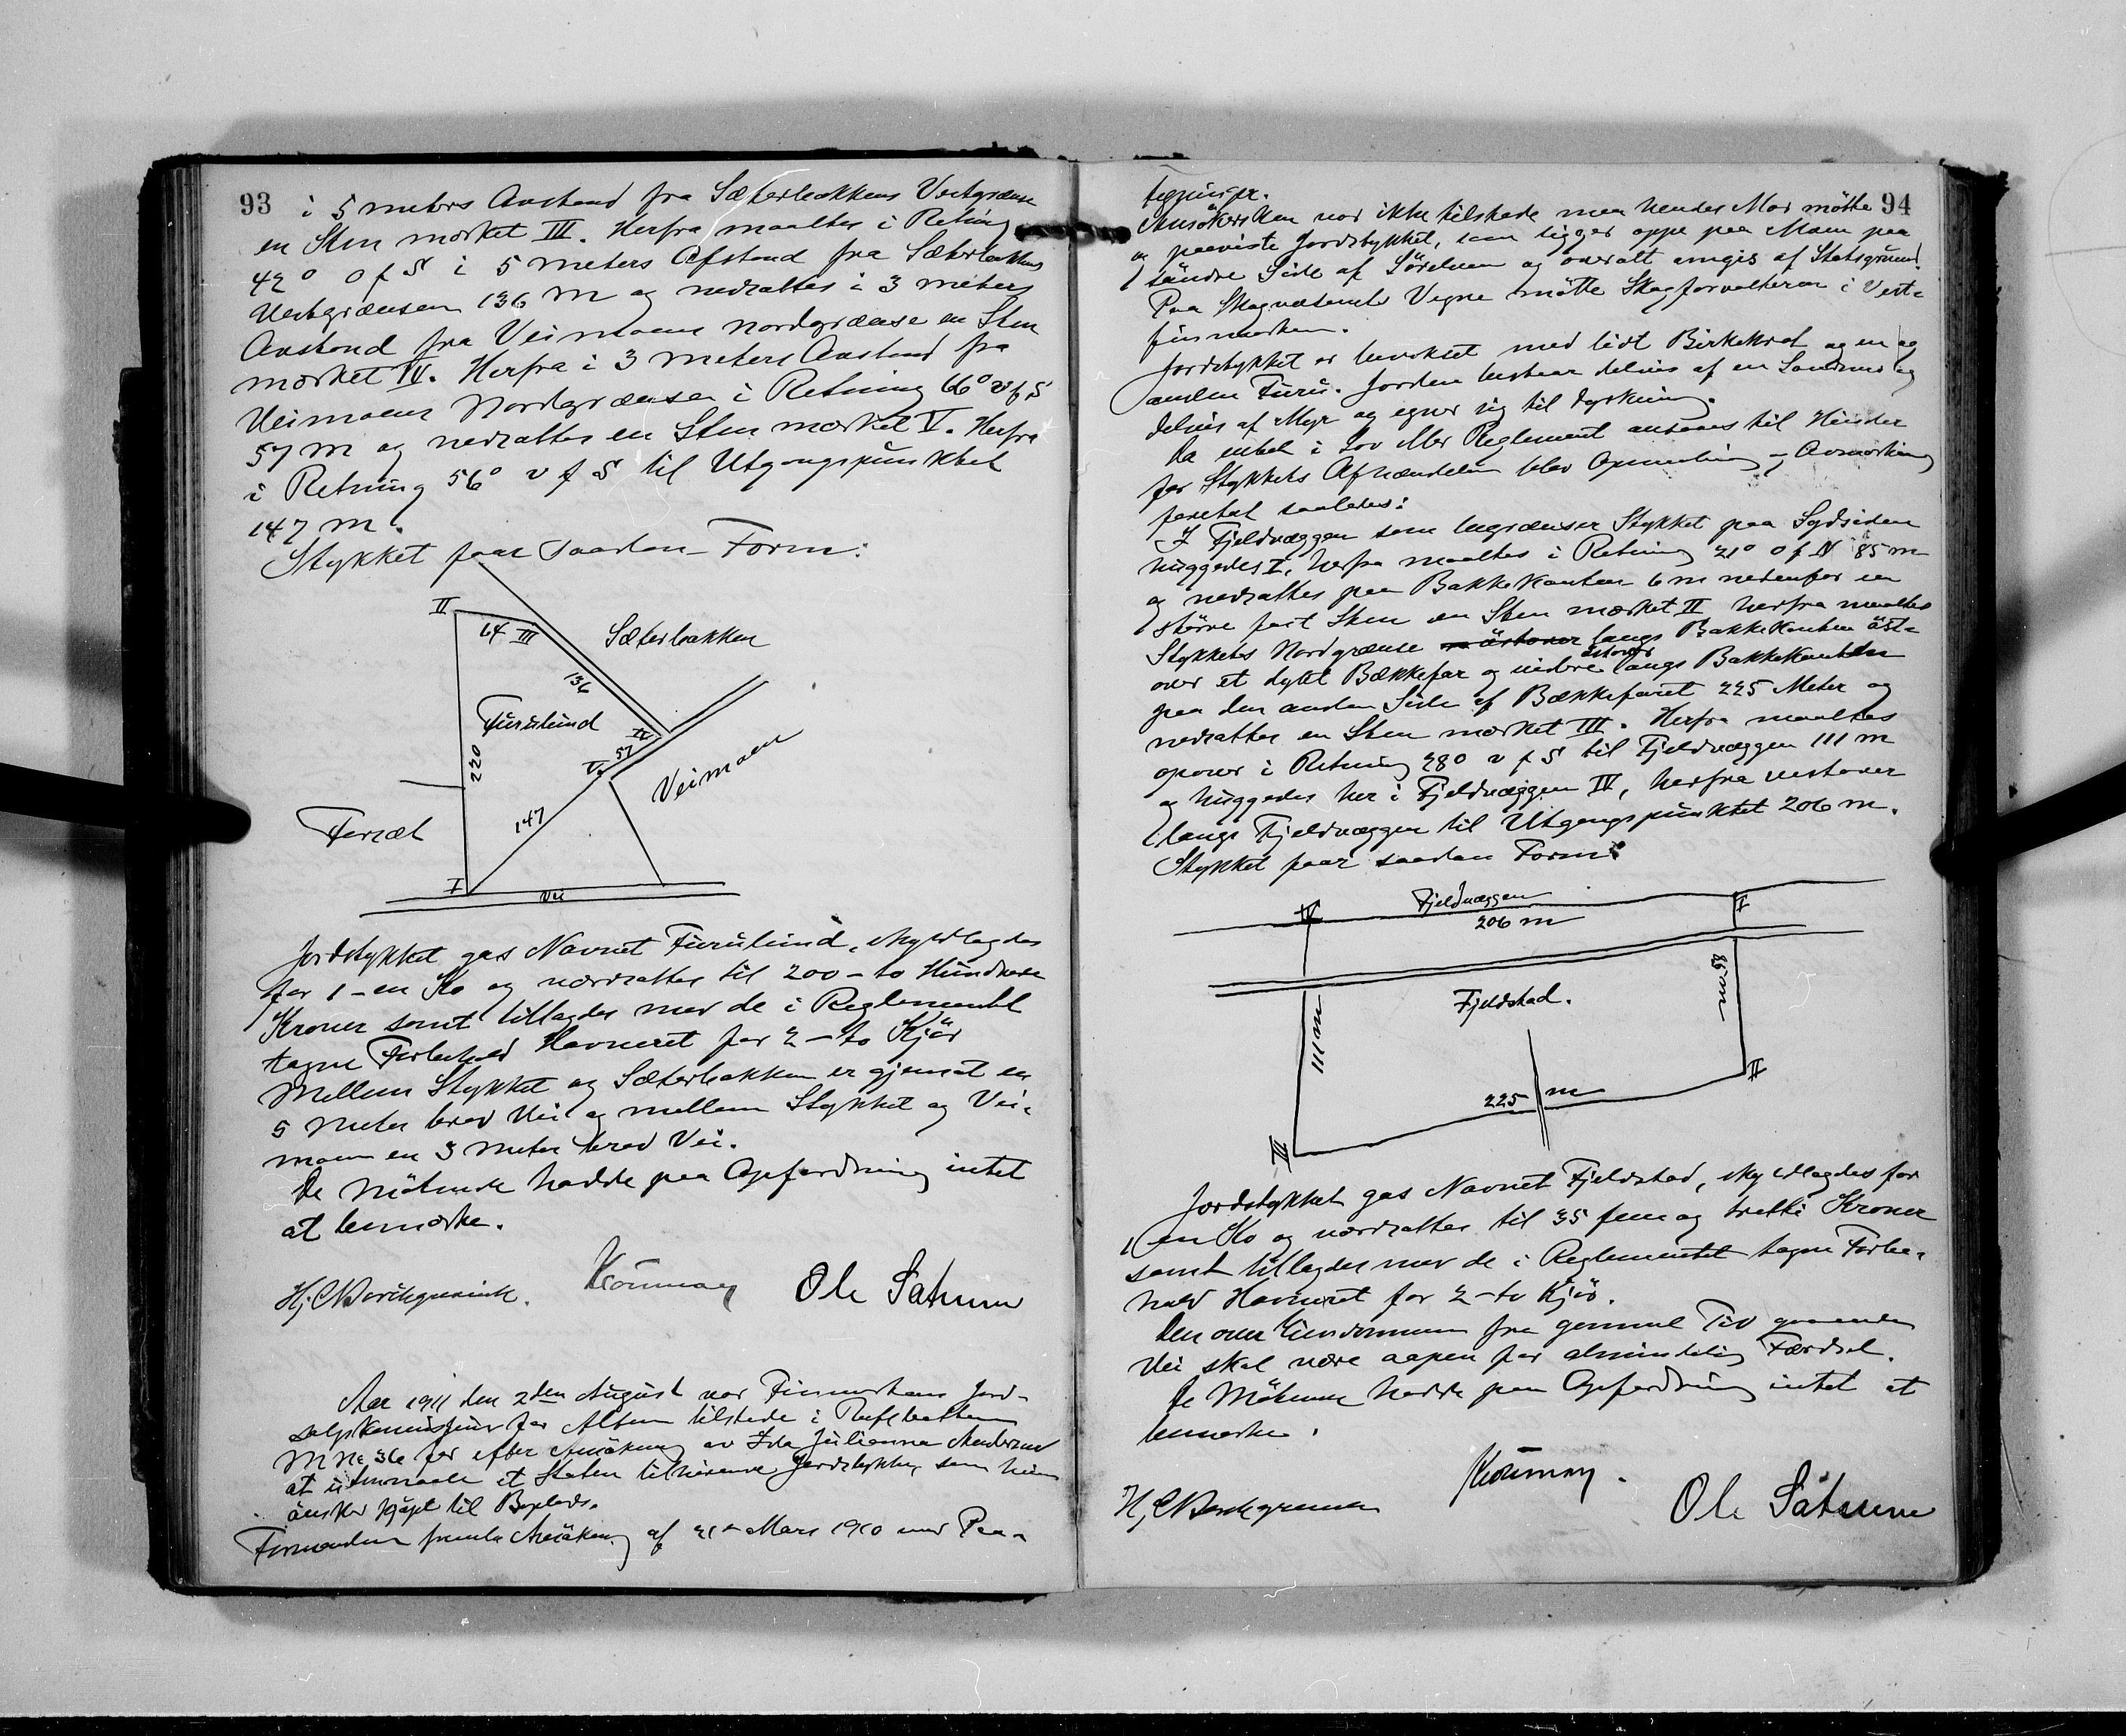 93
i 5 meters Avstand fra Sæterbakkens Vestgrænse
en Sten mærket III. Herfra maaltes i Retning
42° O f S i 5 meters Afstand fra Sæterbakkens
Vestgrænsen 136 m og nedsattes i 3 meters
Avstand fra Veimoens Nordgrænse en Sten
mærket IV. Herfra i 3 meters Avstand fra
Veimoens Nordgrænse i Retning 66° v f S
57 m og nedsattes en Sten mærket V. Herfra
i Retning 56° v f S til Utgangspunktet
147 m.
Stykket faar saadan Form:
II
64 III
Sæterbakken
136
Furulund
IV
57
V
220
Veimoen
147
Forsæt
I
Vei
Jordstykket gas Navnet Furulund, skyldlagdes
for 1 - en Ko og værdsattes til 200 - to Hundrede
Kroner samt tillagdes med de i Reglementet
tagne Forbehold Havneret for 2 - to Kjör
Mellem Stykket og Sæterbakken er gjensat en
5 Meter bred Vei og mellem Stykket og Vei-
moen en 3 Meter bred Vei.
De Mötende hadde paa Opfordring intet
at bemærke.
Ole Sätrum
Aar 1911 den 2den August var Finmarkens Jord-
salgskommission for Alten tilstede i
M No 36 for efter Ansökning av Ida Julianna Andersen
at utmaale et Staten tilhörende Jordstykke, som hun
önsker kjöpt til Boplads.
Formanden fremla Ansökning af 21de Mars 1910 med Paa-
94
tegninger.
Ansökersken var ikke tilstede men hendes Mor mötte
og paaviste Jordstykket, som ligger oppe paa Moen paa
söndre Side af Sörelven og overalt omgis af Statsgrund.
Paa Skogvæsenets Vegne mötte Skogforvalteren i Vest-
finmarken.
Jordstykket er bevokset med lidt Birkekrat og en og
anden Furu. Jorden bestaar delvis af en Sandmo og
delvis af Myr og egner sig til dyrkning.
Da intet i Lov eller Reglement ansees til Hinder
for Stykkets Afhændelse blev Opmaaling og Avmærkning
foretat saaledes:
I Fjeldvæggen som begrænser Stykket paa Sydsiden
huggedes I, herfra maaltes i Retning 21° O f N 85 m
og nedsattes paa Bakkekanten 6 m nedenfor en
större fast Sten en Sten mærket II herfra maaltes
Stykkets Nordgrænse östover langs Bakkekanten öst-
over et dypt Bækkefar og videre östover langs Bakkekanten
paa den anden Side af Bækkefaret 225 Meter og
nedsattes en Sten mærket III. Herfra maaltes
opover i Retning 28° v f S til Fjeldvæggen 111 m
og huggedes her i Fjeldvæggen IV, herfra vestover
langs Fjeldvæggen til Utgangspunktet 206 m.
Stykket faar saadan Form:
IV
Fjeldvæggen
206 m
I
85 m
Fjeldstad.
111 m
225 m
II
III
Jordstykket gas Navnet Fjeldstad, skyldlagdes for
1 en Ko og værdsattes til 35 fem og tretti Kroner
samt tillagdes med de i Reglementet tagne Forbe-
hold Havneret for 2 - to Kjör.
Den over Eiendommen fra gammel Tid gaaende
Vei skal være aapen for almindelig Færdsel.
De Mötende hadde paa Opfordring intet at
bemærke.
Ole Sätrum